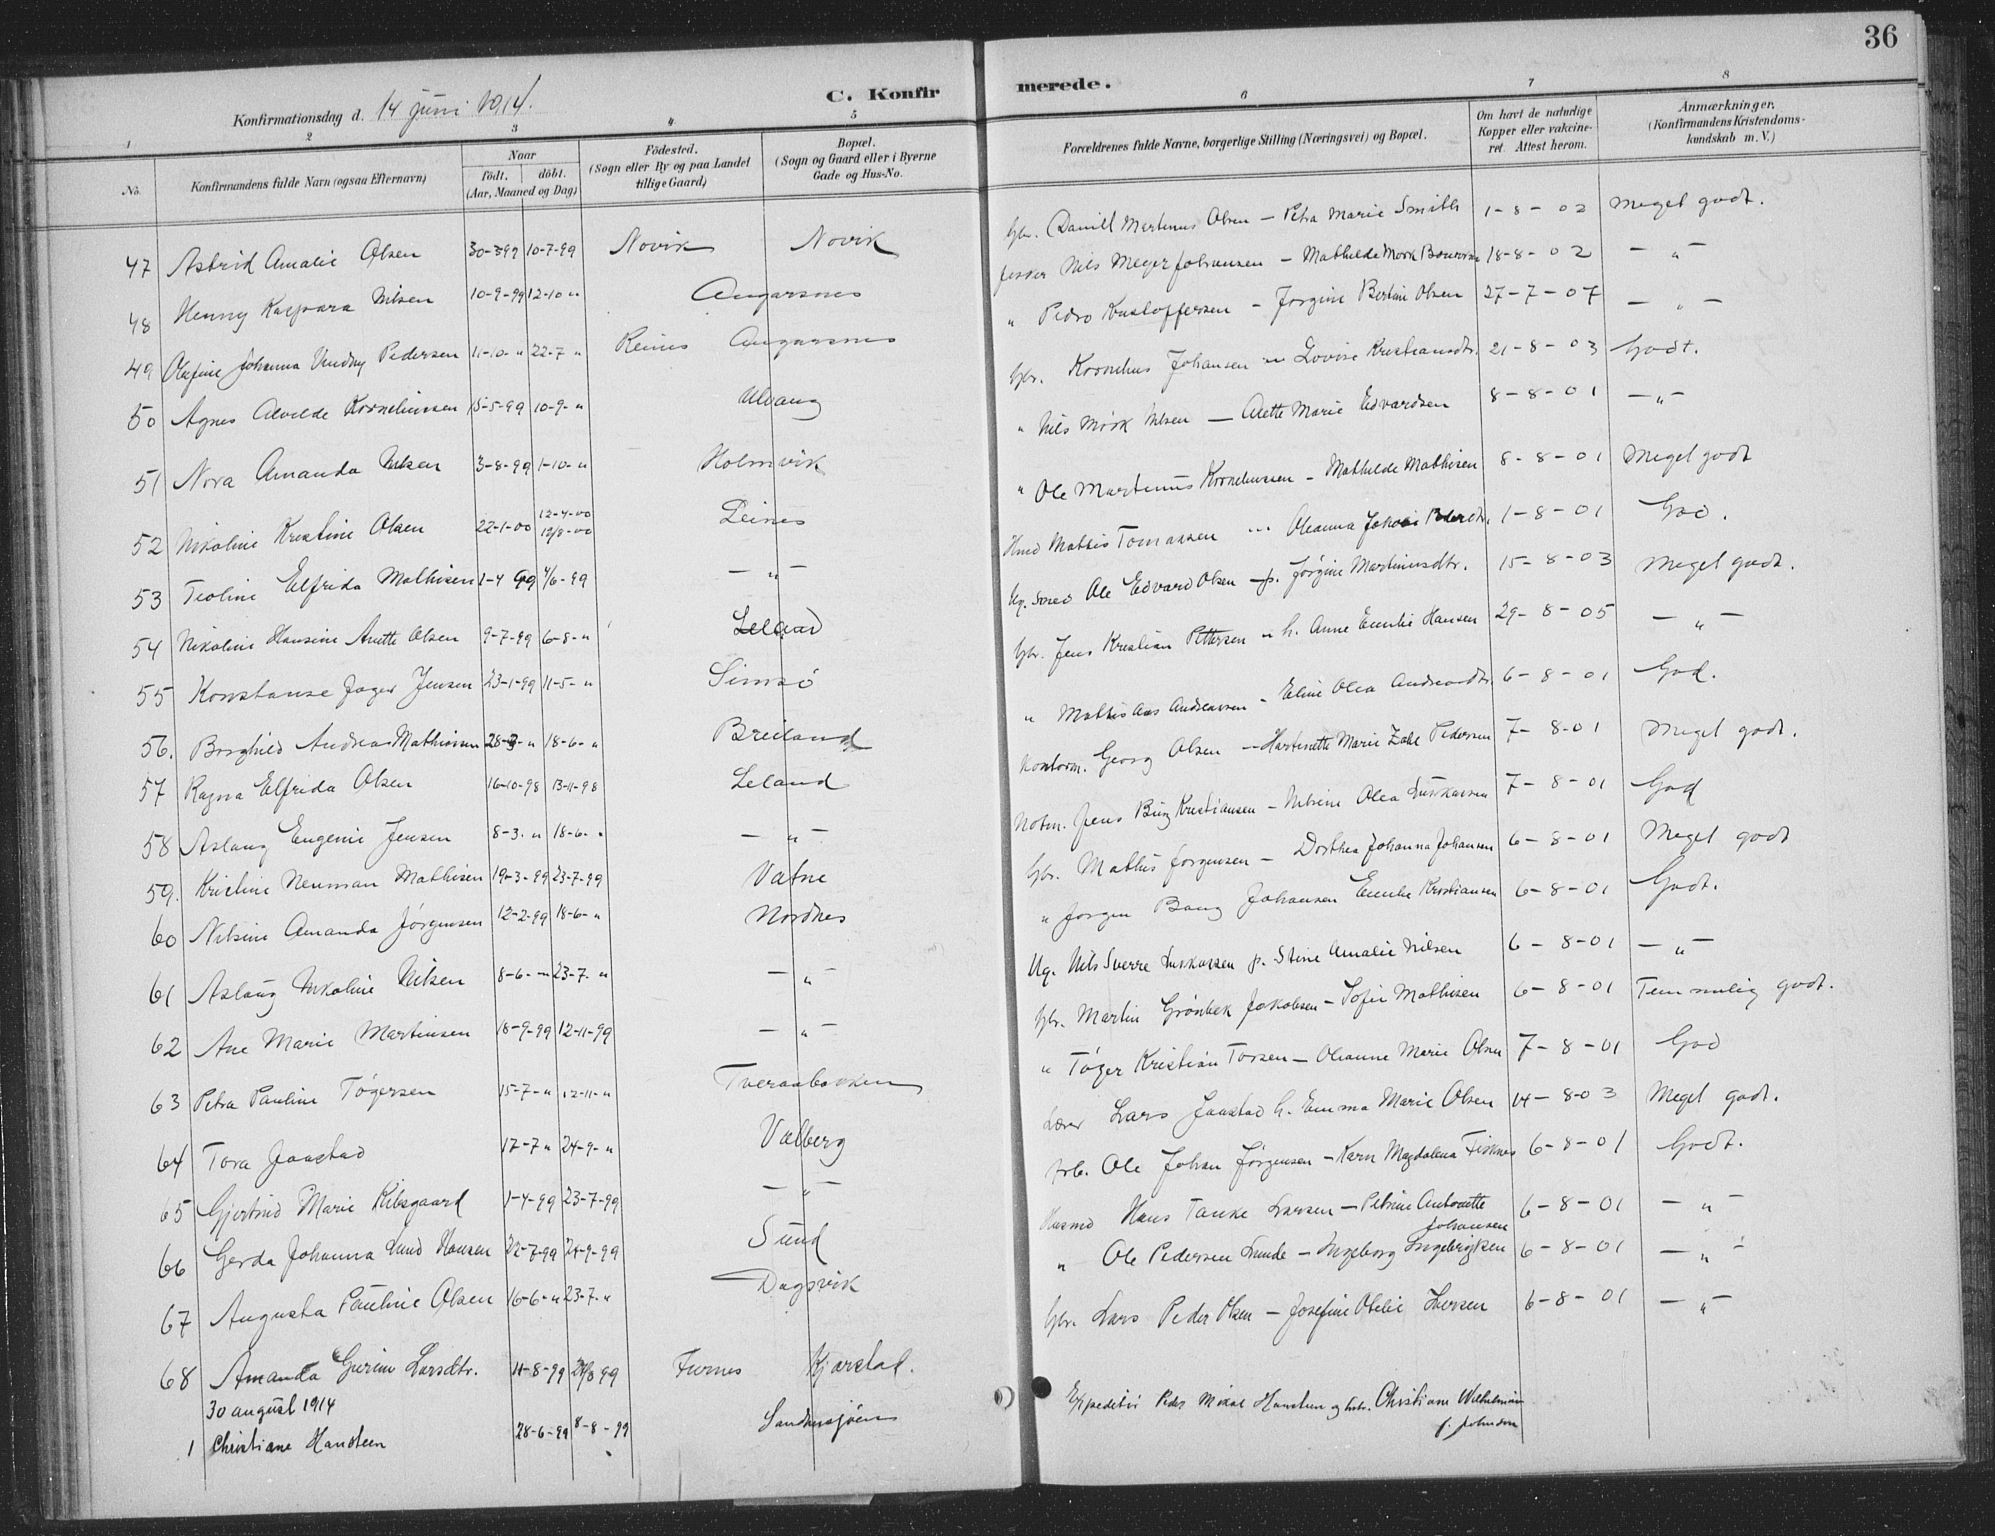 36
Konfirmationsdag d. 14 juni 1914.
C. Konfirmerede.
1 2 3 4 5 6 7 8
No.
Konfirmandens fulde Navn (ogsaa Efternavn)
Naar
födt. döbt.
(Aar, Maaned og Dag)
Födested.
(Sogn eller By og paa Landet
tillige Gaard)
Bopæl.
(Sogn og Gaard eller i Byerne
Gade og Hus-No.
Forældrenes fulde Navne, borgerlige Stilling (Næringsvei) og Bopæl.
Om havt de naturlige
Kopper eller vakcine-
ret. Attest herom.
Anmærkninger.
(Konfirmandens Kristendoms-
kundskab m. V.)
47 Astrid Amalie Olsen 30-3 99 10-7-99 Novik Novik Gbr. Daniel Martinus Olsen — Petra Marie Smith 1-8-02 Meget godt.
48 Henny Kaspara Nilsen 10-9-99 12-10 " Angarsnes Nils Meyer Johansen — Mathilde Mork 18-8-02 — " —
49 Olefine Johanna Pedersen 11-10- " 22-7 " Reines Angarsnes " Pedro Kristoffersen - Jorgine Bertine Olsen 27-7-07 — " —
50 Agnes Alvilde Korneliussen 15-5-99 10-9- " Ulvang Gbr. Kornelius Johansen — Lovise Kristiansdtr. 21-8-03 Godt.
51 Nora Amanda Nilsen 3-8-99 1-10- " Holmvik " Nils Mörk Nilsen — Anette Marie Edvardsen 8-8-01 — " —
52 Nikoline Kristine Olsen 22-1-00 12-4-00 Leines " Ole Martinus Korneliussen - Mathilde Mathisen 8-8-01 Meget godt
53 Teoline Elfrida Mathisen 1-4 99 4/6-99 — " — Mathis Tomassen Oleanna 1-8-01 God.
54 Nikoline Hansine Anette Olsen 9-7-99 6-8- " Leland Ug. Smed Ole Edvard Olsen — p. Jörgine Martinusdtr. 15-8-03 Meget godt.
55 Konstanse Jager Jensen 23-1-99 11-5- " Simsö Gbr. Jens Kristian Pettersen h. Anne Emilie Hansen 29-8-05 — " —
56. Borghild Andrea Mathisen 28-3- " 18-6- " Breiland " Mathis Aas Andreassen - Eline Olea Andreasdtr. 6-8-01 God.
57 Ragna Elfrida Olsen 16-10-98 13-11-98 Leland Kontorm. Georg Olsen — Marie Zahl Pedersen 7-8-01 Meget godt.
58 Aslaug Eugenie Jensen 8-3- " 18-6- " — " — Jens Bing Kristiansen - Nilsine Olea 7-8-01 God
59. Kristine Neuman Mathisen 19-3-99 23-7-99 Vatne Gbr. Mathis Jørgensen — Dorthea Johanna Johansen 6-8-01 Meget godt
60 Nilsine Amanda Jörgensen 12-2-99 18-6- " Nordnes " Jorgen Bang Johansen Emilie Kristiansen 6-8-01 Godt.
61 Aslaug Nikoline Nilsen 8-6- " 23-7. " — " — Ug. Nils Sverre p. Stine Amalie Nilsen 6-8-01 — " —
62 Ane Marie Martinsen 18-9-99 12-11-99 — " — Gbr. Martin Grönbek Jakobsen — Sofie Mathisen 6-8-01 Temmelig godt.
63 Petra Pauline Tögersen 15-7- " 12-11- " Tveraabakken " Töger Kristian Torsen — Oleanne Marie Olsen 7-8-01 God
64 Tora Jaastad 17-7 " 24-9- " Valberg Lærer Lars Jaastad h. Emma Marie Olsen 14-8-03 Meget godt.
65 Gjertrud Marie Kibsgaard 1-4-99 23-7-99 — " — Ole Johan Jörgensen — Karn Magdalena 6-8-01 Godt.
66 Gerda Johanna Lund Hansen 22-7-99 24-9-99 Sund Husmd Hans Tanke Larsen — Petrine Antonette Johansen 6-8-01 — " —
67 Augusta Pauline Olsen 16-6- " 23-7- " Dagsvik " Ole Pedersen Lunde — Ingeborg Ingebrigtsen 6-8-01 — " —
68 Amanda Gurine Larsdtr. 11-8-99 99 Furnes Kjærstad. Gbr. Lars Peder Olsen — Josefine Otelie Iversen 6-8-01 — " —
30 august 1914
1 Christiane Hansteen 28-6-99 8-8-99 Sandnessjöen Expeditör Peder Mikal Hansteen og hstr. Christiane Wilhelmine
f. Johnsen